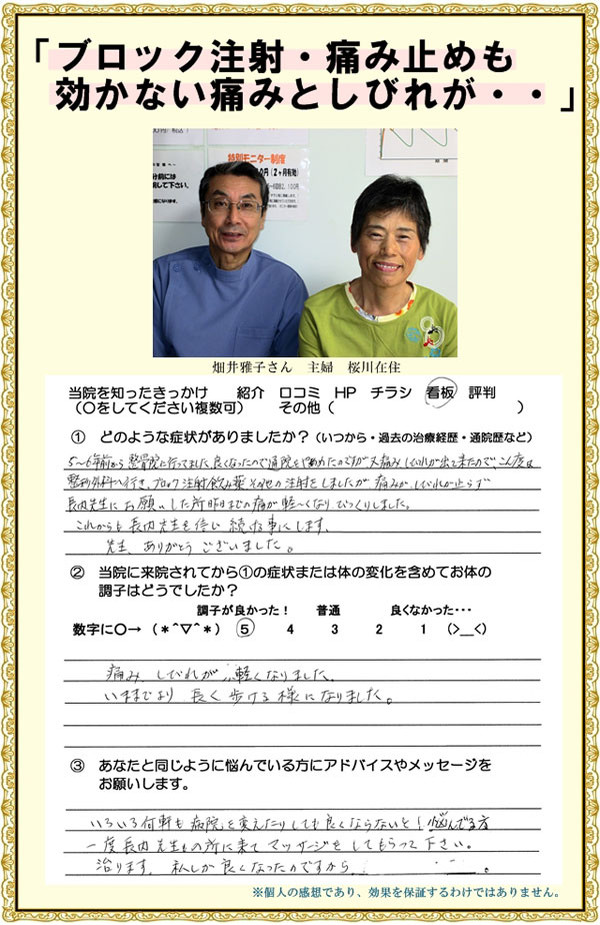 「ブロック注射・痛み止めも
効かない痛みとしびれが・・」
特別モニター制度
(2ヶ月有効)
畑井雅子さん　主婦　桜川在住
当院を知ったきっかけ　紹介　口コミ　HP　チラシ　看板　評判
（〇をしてください複数可）　その他（　　　　　）
① どのような症状がありましたか？（いつから・過去の治療経歴・通院歴など）
5〜6年前から整骨院に行ってました、良くなったので通院をやめたのですが又痛みしびれが出て来たので、こん度は
整形外科へ行き、ブロック注射飲み薬その他の注射をしましたが痛みが、しびれが止らず
長内先生にお願いした所昨日までの痛が軽〜くなりびっくりしました。
これからも長内先生を信じ続ける事にします、
先生、ありがとうございました。
② 当院に来院されてから①の症状または体の変化を含めてお体の
調子はどうでしたか？
調子が良かった！　普通　良くなかった・・・
数字に〇→（＊＾▽＾＊）　5　4　3　2　1　(>__<)
痛み、しびれが、軽くなりました、
いままでより長く歩ける様になりました。
③ あなたと同じように悩んでいる方にアドバイスやメッセージを
お願いします。
いろいろ何軒も病院を変えたりしても良くならないと！悩んでる方
一度長内先生の所に来てマッサージをしてもらって下さい。
治ります、私しが良くなったのですから
※個人の感想であり、効果を保証するわけではありません。